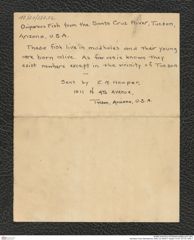 Oviparous Fish from the Santa Cruz River, Tucson,
Arizona, U.S.A.
These fish live in mudholes and their young
are born alive. As far as is known they
exist nowhere except in the vicinity of Tucson
Sent by
1011 N 4th Avenue,
Tucson, Arizona, U.S.A.